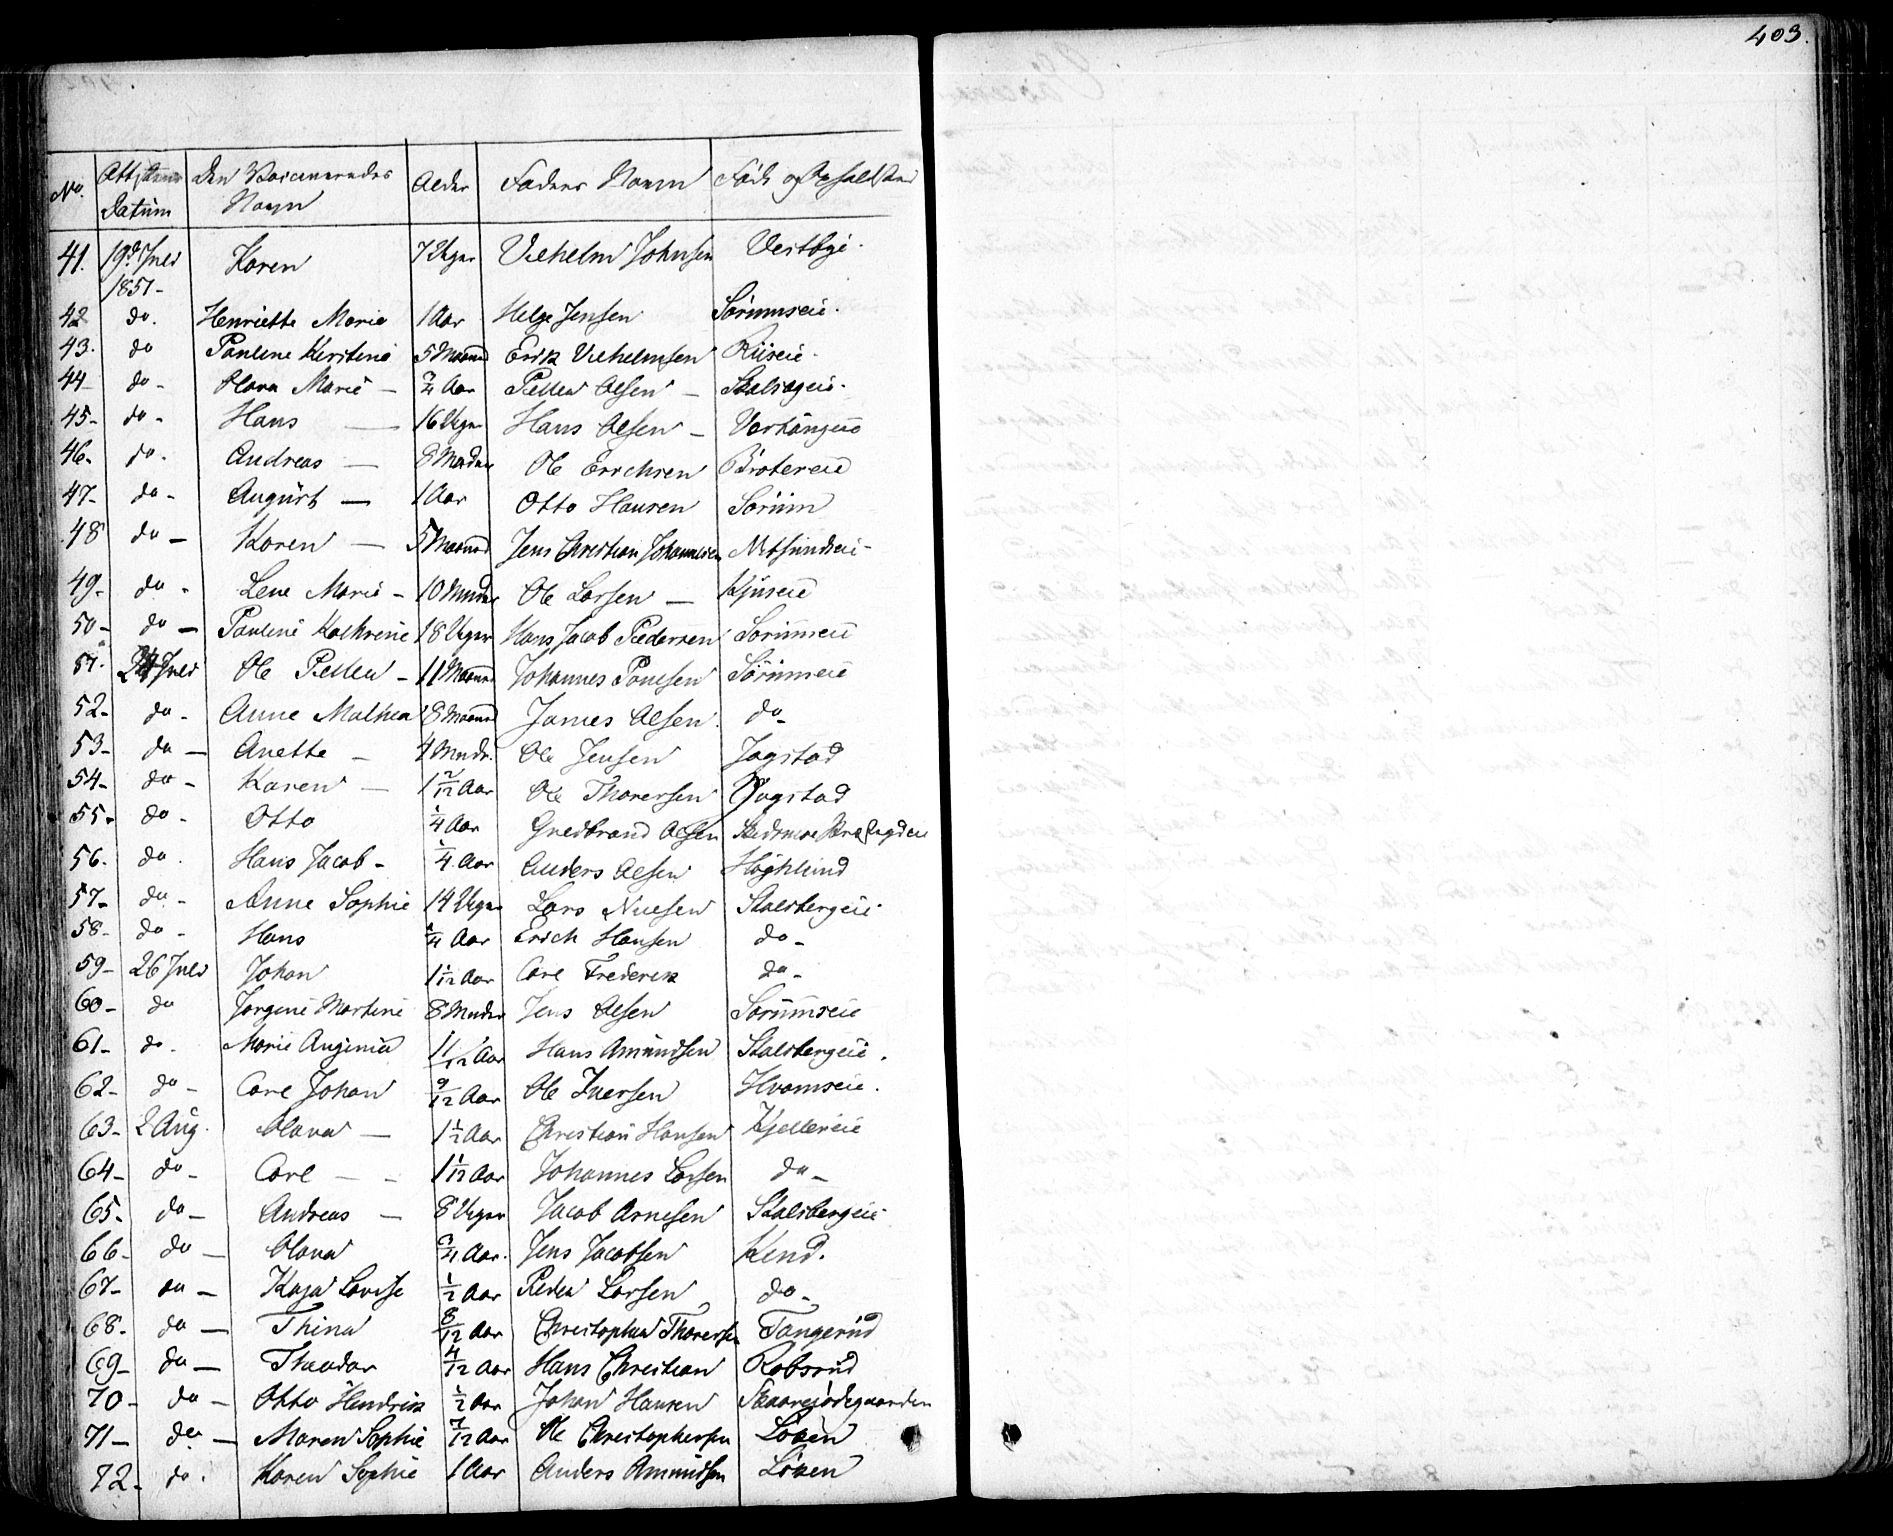 403.
No. Attestens Den Vaccineredes Alder Faders Navn Føde og Opholdsted
Datum Navn
41. 19de Juli Karen 7 Uger Vilhelm Johnsen Vestbye.
1851-
42 do. Henriette Marie 1 Aar Helge Jensen Sørumseie.
43. do Pauline Kirstine 5 Maaned Erik Vilhelmsen Riiseie.
44- do- Olava Marie - 3/4 Aar Petter Olsen - Skalrageie.
45- do- Hans - 16 Uger Hans Olsen -
46. do. Andreas - 8 Mndr Ole Errichsen Brotereie
47- do- August - 1 Aar Otto Hansen Sørum
48 do- Karen - 5 Maaned Jens Christian Johannesen Nitsundseie-
49- do- Lene Marie - 10 Mndr Ole Larsen - Kjuseie
50- do- Pauline Kathrine 18 Uger Hans Jacob Pedersen Sørumseie
51. 24 Juli Ole Petter - 11 Maaned Johannes Poulsen Sørumeie
52- do- Anne Mathea 8 Maaned James Olsen. do-
53- do- Anette - 4 Mndr. Ole Jensen Jogstad
54- do- Karen - 1 2/12 Aar Ole Thoresen Jogstad
55- do- Otto 1/4 Aar Gudbrand Olsen Skedsmoe
56. do. Hans Jacob - 1/4 Aar Anders Olsen Høghlund
57- do- Anne Sophie 14 Uger Lars Nielsen Stalsbergeie.
58- do- Hans 3/4 Aar Erich Hansen do-
59- 26 Juli Johan 1 1/12 Aar Carl Frederik do-
60- do Jørgine Martine 8 Mndr Jens Olsen Sørumseie
61- do. Marie Augenia 11/12 Aar Hans Amundsen Stalsbergeie.
62- do- Carl Johan 9/12 Aar Ole Iversen Hvamseie.
63- 2 Aug. Olava - 1 1/2 Aar Christian Hansen Kjellereie
64- do- Carl - - 1 1/12 Aar Johannes Larsen do-
65- do- Andreas - 8 Uger Jacob Arnesen Stalsbergeie
66- do- Olava 3/4 Aar. Jens Jacobsen Kend.
67- do- Kaja Lovise 1/2 Aar Peder Larsen do-
68. do- Thina 8/12 Aar Christopher Thoresen Tangerud
69- do- Theodor 4/12 Aar Hans Christian Robsrud
70- do- Otto Hendrik 1/2 Aar Johan Hansen Skaarerødegaarden
71- do- Maren Sophie 7/12 Aar Ole Christophersen Løken
72- do. Karen Sophie 1 Aar Anders Amundsen Løken